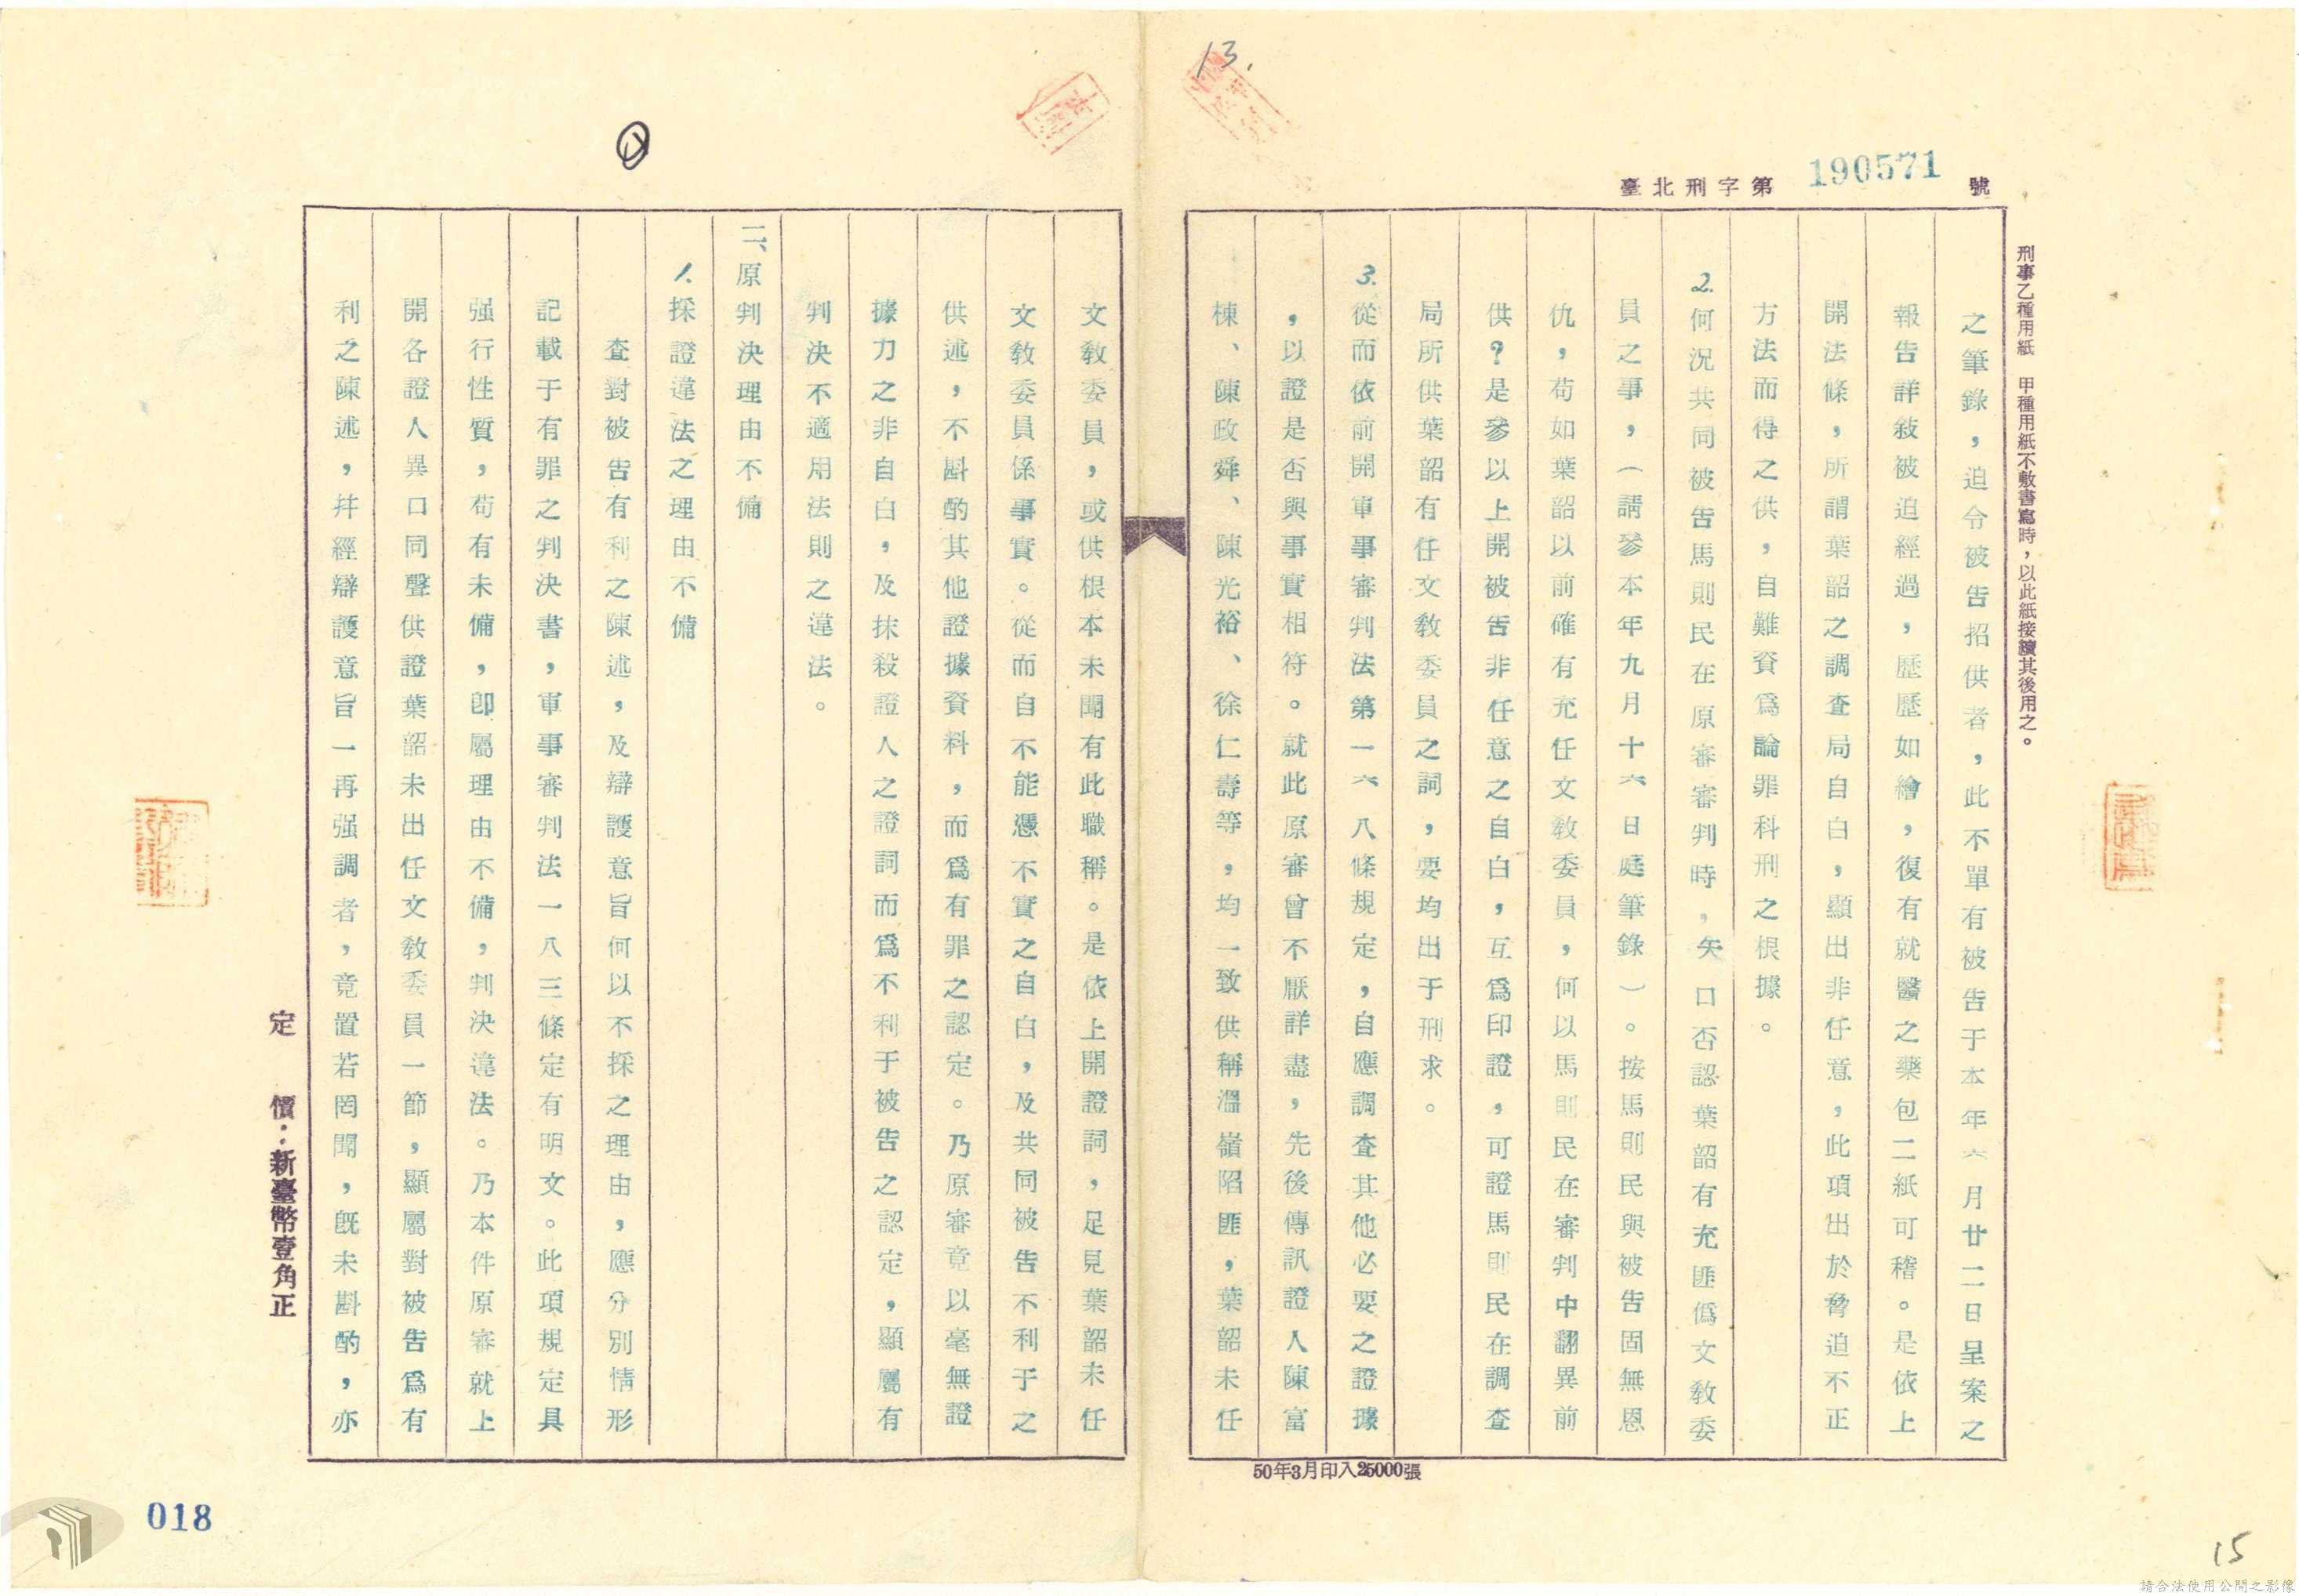 13.
臺北刑字第 190571 號
刑事乙種用紙 甲種用紙不敷書寫時，以此紙接續其後用之。
之筆錄，迫令被告招供者，此不單有被告于本年六月廿二日呈案之
報告詳敍被迫經過，歷歷如繪，復有就醫之藥包二紙可稽。是依上
開法條，所謂葉韶之調查局自白，顯出非任意，此項出於脅迫不正
方法而得之供，自難資爲論罪科刑之根據。
2.何況共同被告馬則民在原審審判時，矢口否認葉韶有充匪僞文敎委
員之事，（請參本年九月十六日庭筆錄）。按馬則民與被告固無恩
仇，苟如葉韶以前確有充任文敎委員，何以馬則民在審判中翻異前
供？是參以上開被告非任意之自白，互爲印證，可證馬則民在調查
局所供葉韶有任文敎委員之詞，要均出于刑求。
3.從而依前開軍事審判法第一六八條規定，自應調查其他必要之證據
，以證是否與事實相符。就此原審曾不厭詳盡，先後傳訊證人陳富
棟、陳政舜、陳光裕、徐仁壽等，均一致供稱溫嶺陷匪，葉韶未任
50年3月印入25000張
文敎委員，或供根本未聞有此職稱。是依上開證詞，足見葉韶未任
文敎委員係事實。從而自不能憑不實之自白，及共同被告不利于之
供述，不斟酌其他證據資料，而爲有罪之認定。乃原審竟以毫無證
據力之非自白，及抹殺證人之證詞而爲不利于被告之認定，顯屬有
判決不適用法則之違法。
二、原判決理由不備
1.採證違法之理由不備
查對被告有利之陳述，及辯護意旨何以不採之理由，應分別情形
記載于有罪之判決書，軍事審判法一八三條定有明文。此項規定具
强行性質，苟有未備，卽屬理由不備，判決違法。乃本件原審就上
開各證人異口同聲供證葉韶未出任文敎委員一節，顯屬對被告爲有
利之陳述，幷經辯護意旨一再强調者，竟置若罔聞，旣未斟酌，亦
定 價：新臺幣壹角正
018
15
請合法使用公開之影像